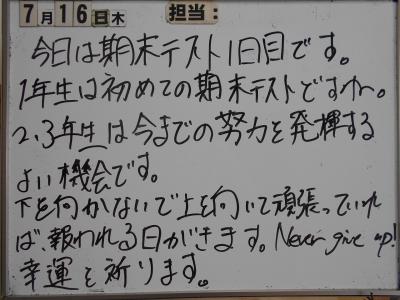 7月16日木 担当：
今日は期末テスト1日目です。
1年生は初めての期末テストですね。
2、3年生は今までの努力を発揮する
よい機会です。
下を向かないで上を向いて頑張っていれ
ば、報われる日がきます。Never give up!
幸運を祈ります。